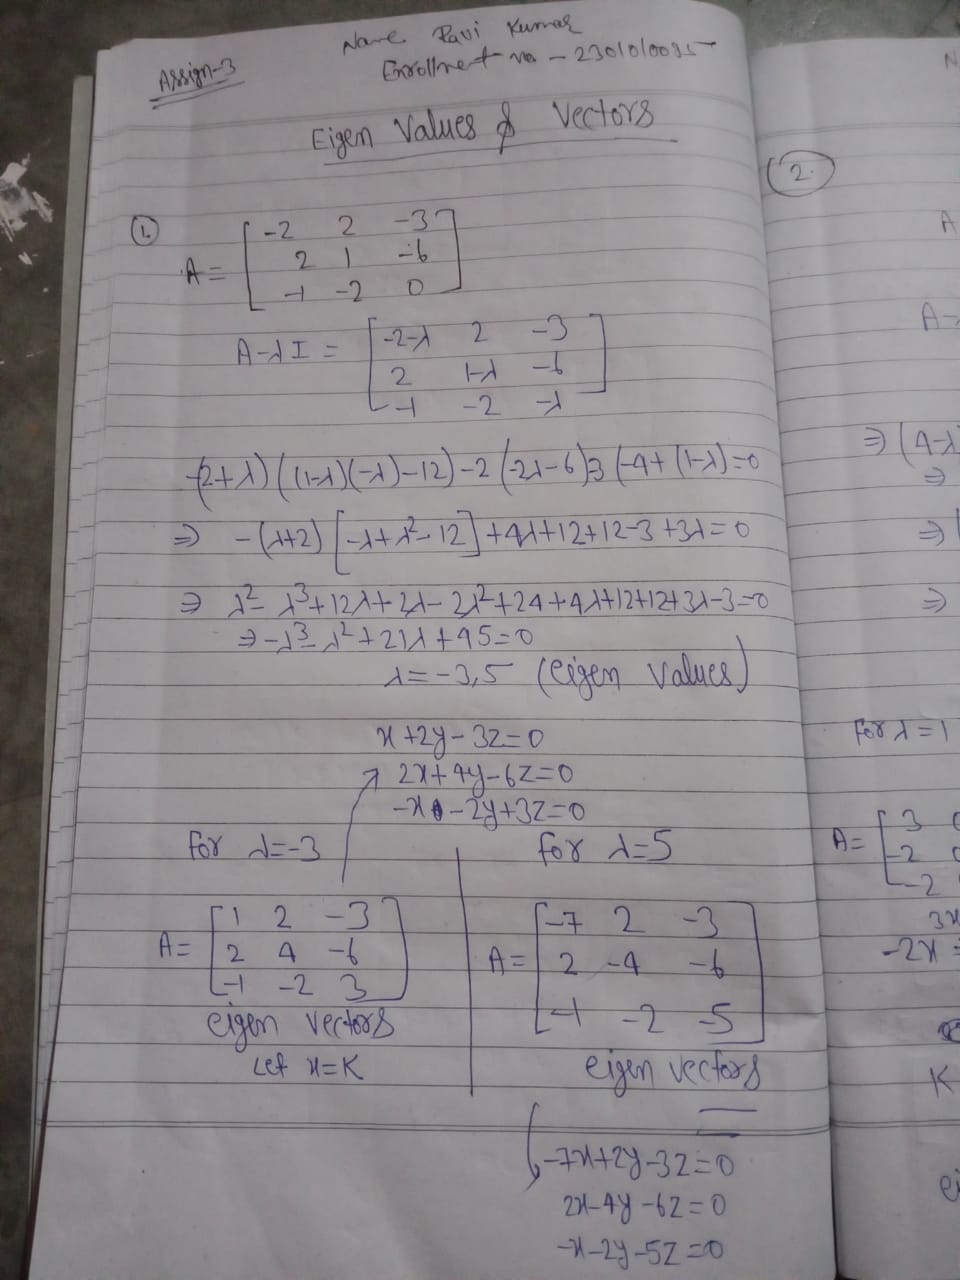 Assign-3
Name Ravi Kumar
Enrollment no - 2301010085
Eigen Values & Vectors
1.
A = [-2 2 -3
2 1 -6
-1 -2 0]
A-λI = [-2-λ 2 -3
2 1-λ -6
-1 -2 -λ]
-(2+λ)((1-λ)(-λ)-12)-2(-2λ-6)3(-4+(1-λ)=0
⇒ -(λ+2)[-λ+λ²-12]+4λ+12+12-3+3λ=0
⇒ λ²-λ³+12λ+2λ-2λ²+24+4λ+12+12+3λ-3=0
⇒ -λ³-λ²+21λ+45=0
λ=-3,5 (eigen values)
x+2y-3z=0
2x+4y-6z=0
-x-2y+3z=0
for λ=-3
A= [1 2 -3
2 4 -6
-1 -2 3]
eigen vectors
Let x=K
for λ=5
A= [-7 2 -3
2 -4 -6
-1 -2 -5]
eigen vectors
-7x+2y-3z=0
2x-4y-6z=0
-x-2y-5z=0
2.
N
A
A-
⇒ (4-λ
⇒
⇒ (
⇒
for λ=1
A= [3
-2
-2
3x
-2x
K
ei